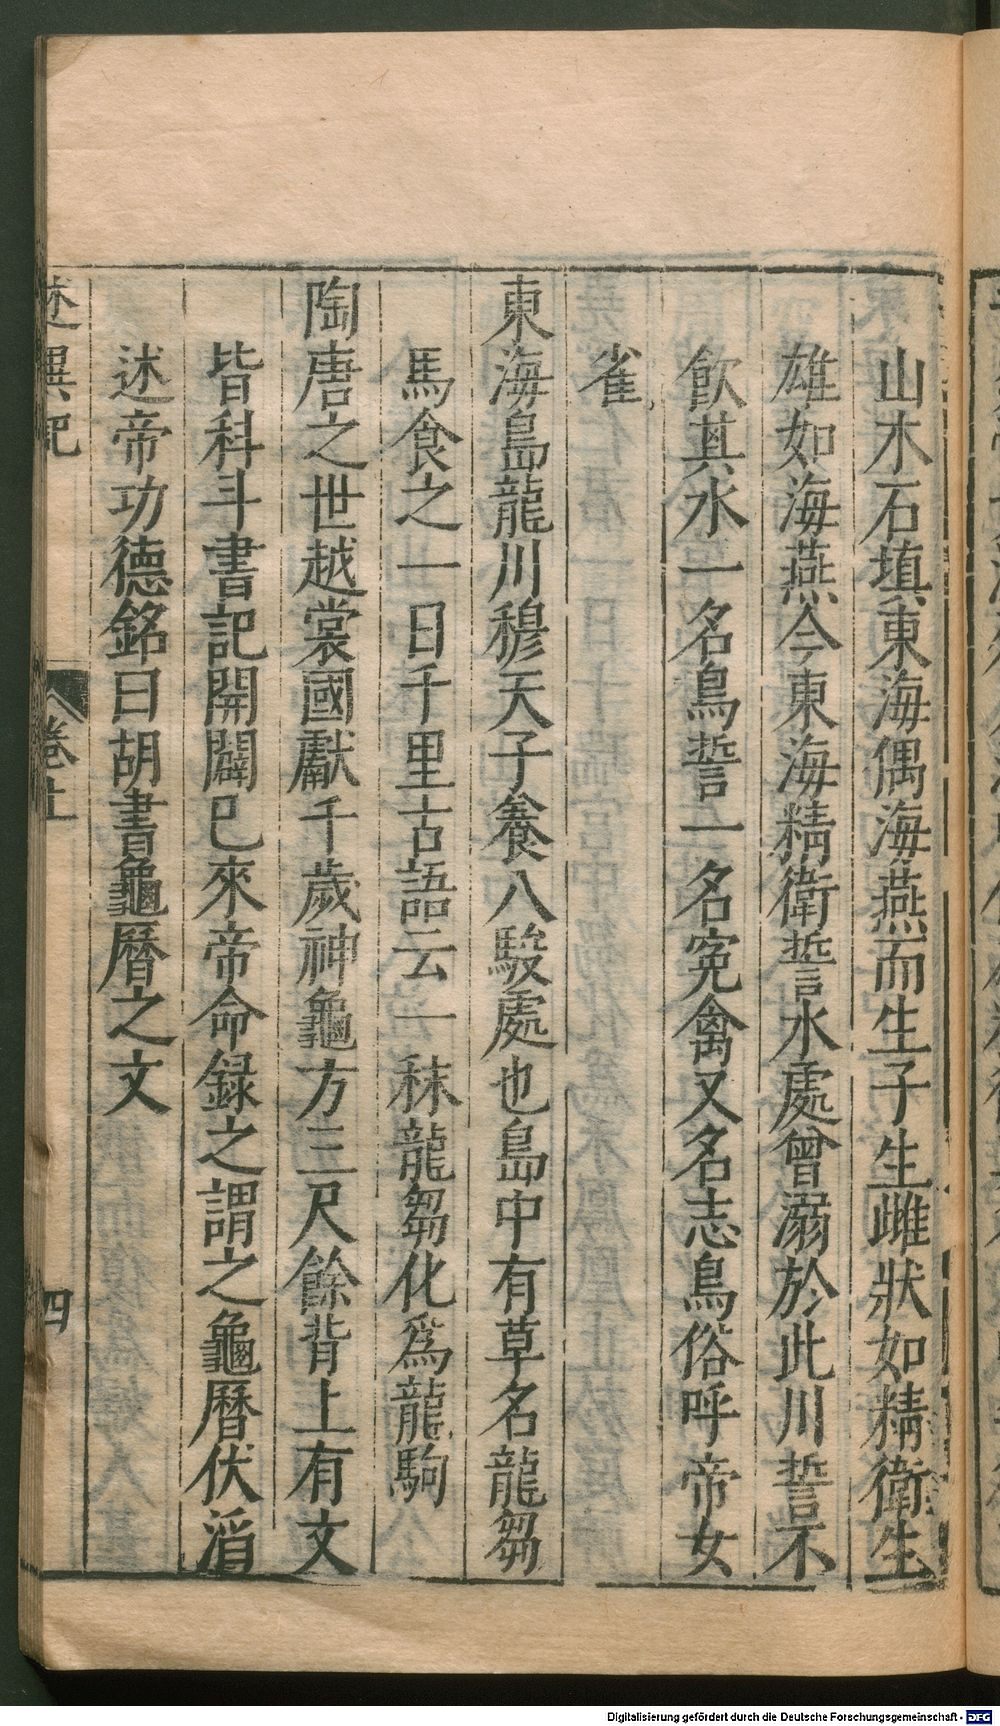 山木石填東海偶海燕而生子生雌狀如精衛生
雄如海燕今東海精衛誓水處曾溺於此川誓不
飲其水一名鳥誓一名寃禽又名志鳥俗呼帝女
雀
東海島龍川穆天子養八駿處也島中有草名龍芻
馬食之一日千里古語云一秣龍芻化爲龍駒
陶唐之世越裳國獻千歲神龜方三尺餘背上有文
皆科斗書記開闢已來帝命録之謂之龜曆伏滔
述帝功德銘曰胡書龜曆之文
述異記
卷上
四
Digitalisierung gefördert durch die Deutsche Forschungsgemeinschaft - DFG